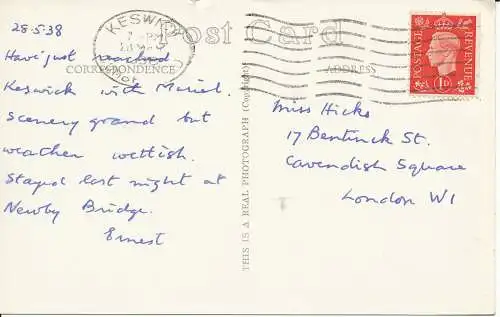 28·5·38
KESWICK
Post Card
CORRESPONDENCE
ADDRESS
POSTAGE
REVENUE
1D
Have just reached
Keswick with Muriel.
Scenery grand but
weather wettish.
Stayed last night at
Newby Bridge.
Ernest
THIS IS A REAL PHOTOGRAPH (Copyright)
Miss Hicks
17 Bentinck St.
Cavendish Square
London W1